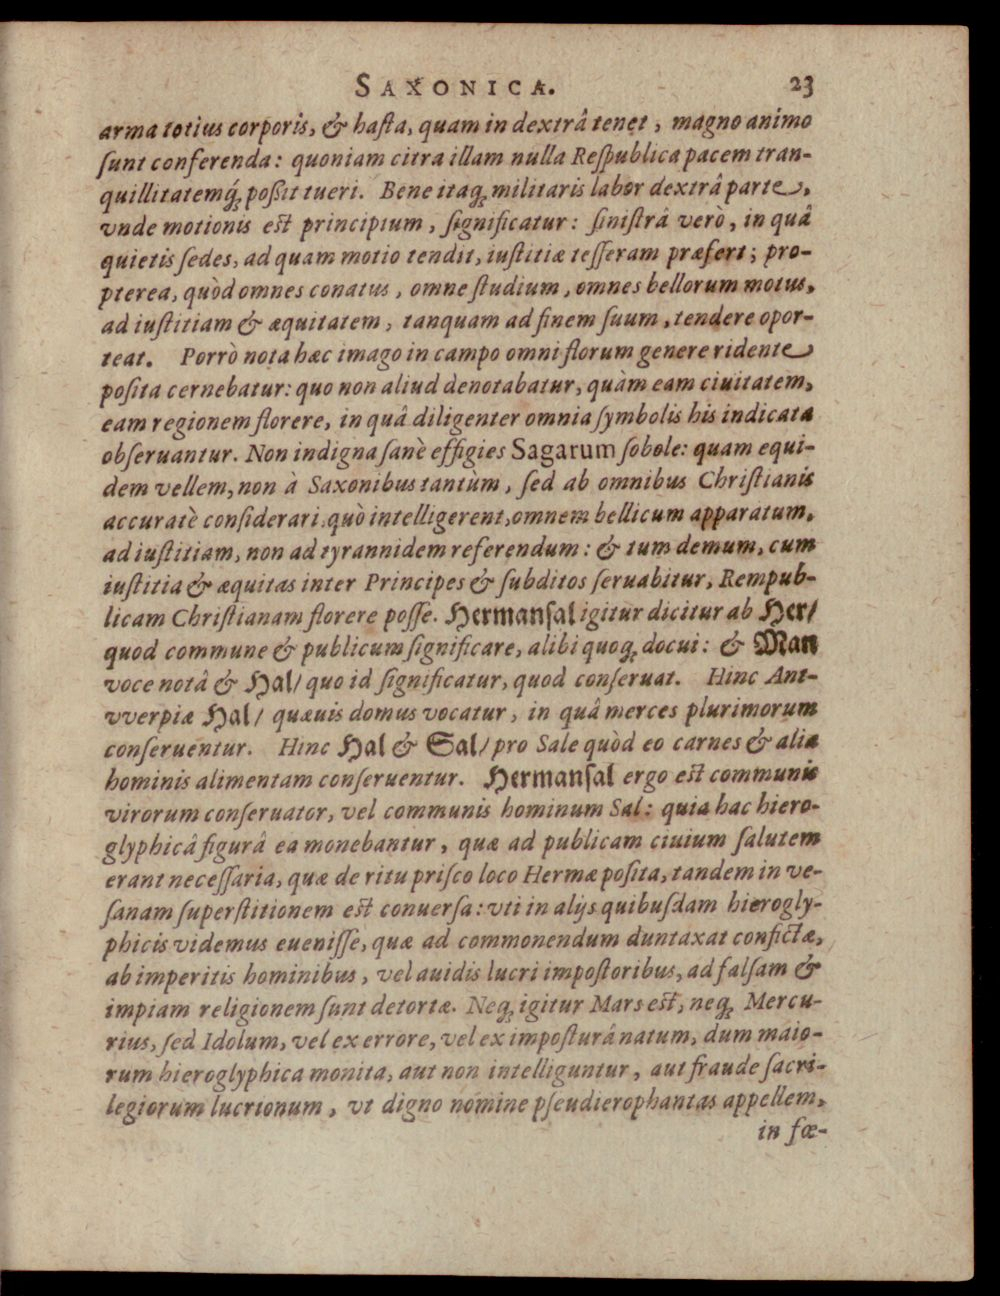 SAXONICA. 23
arma totius corporis, & haſta, quam in dextrâ tenet, magno animo
ſunt conferenda: quoniam citra illam nulla Reſpublica pacem tran-
quillitatemq́ꝫ poßit tueri. Bene itaqꝫ militaris labor dextrâ parte,
vnde motionis est principium, ſignificatur: ſiniſtrâ verò, in quâ
quietis ſedes, ad quam motio tendit, iuſtitiæ teſſeram præfert; pro-
pterea, quòd omnes conatus, omne ſtudium, omnes bellorum motus,
ad iuſtitiam & æquitatem, tanquam ad finem ſuum, tendere opor-
teat. Porrò nota hæc imago in campo omni florum genere ridente
poſita cernebatur: quo non aliud denotabatur, quàm eam ciuitatem,
eam regionem florere, in quâ diligenter omnia ſymbolis his indicata
obſeruantur. Non indigna ſanè effigies Sagarum ſobole: quam equi-
dem vellem, non à Saxonibus tantùm, ſed ab omnibus Chriſtianis
accuratè conſiderari, quò intelligerent, omnem bellicum apparatum,
ad iuſtitiam, non ad tyrannidem referendum: & tum demum, cum
iuſtitia & æquitas inter Principes & ſubditos ſeruabitur, Rempub-
licam Chriſtianam florere poſſe. Hermanſal igitur dicitur ab Her/
quod commune & publicum ſignificare, alibi quoqꝫ docui: & Man
voce notâ & Hal/ quo id ſignificatur, quod conſeruat. Hinc Ant-
vverpiæ Hal/ quæuis domus vocatur, in quâ merces plurimorum
conſeruentur. Hinc Hal & Sal/ pro Sale quòd eo carnes & aliæ
hominis alimentam conſeruentur. Hermanſal ergo est communis
virorum conſeruator, vel communis hominum Sal: quia hac hiero-
glyphicâ figurâ ea monebantur, quæ ad publicam ciuium ſalutem
erant neceſſaria, quæ de ritu priſco loco Hermæ poſita, tandem in ve-
ſanam ſuperſtitionem est conuerſa: vti in alijs quibuſdam hierogly-
phicis videmus eueniſſe, quæ ad commonendum duntaxat confictæ,
ab imperitis hominibus, vel auidis lucri impoſtoribus, ad falſam &
impiam religionem ſunt detortæ. Neqꝫ igitur Mars est, neqꝫ Mercu-
rius, ſed Idolum, vel ex errore, vel ex impoſturâ natum, dum maio-
rum hieroglyphica monita, aut non intelliguntur, aut fraude ſacri-
legiorum lucrionum, vt digno nomine pſeudierophantas appellem,
in fœ-